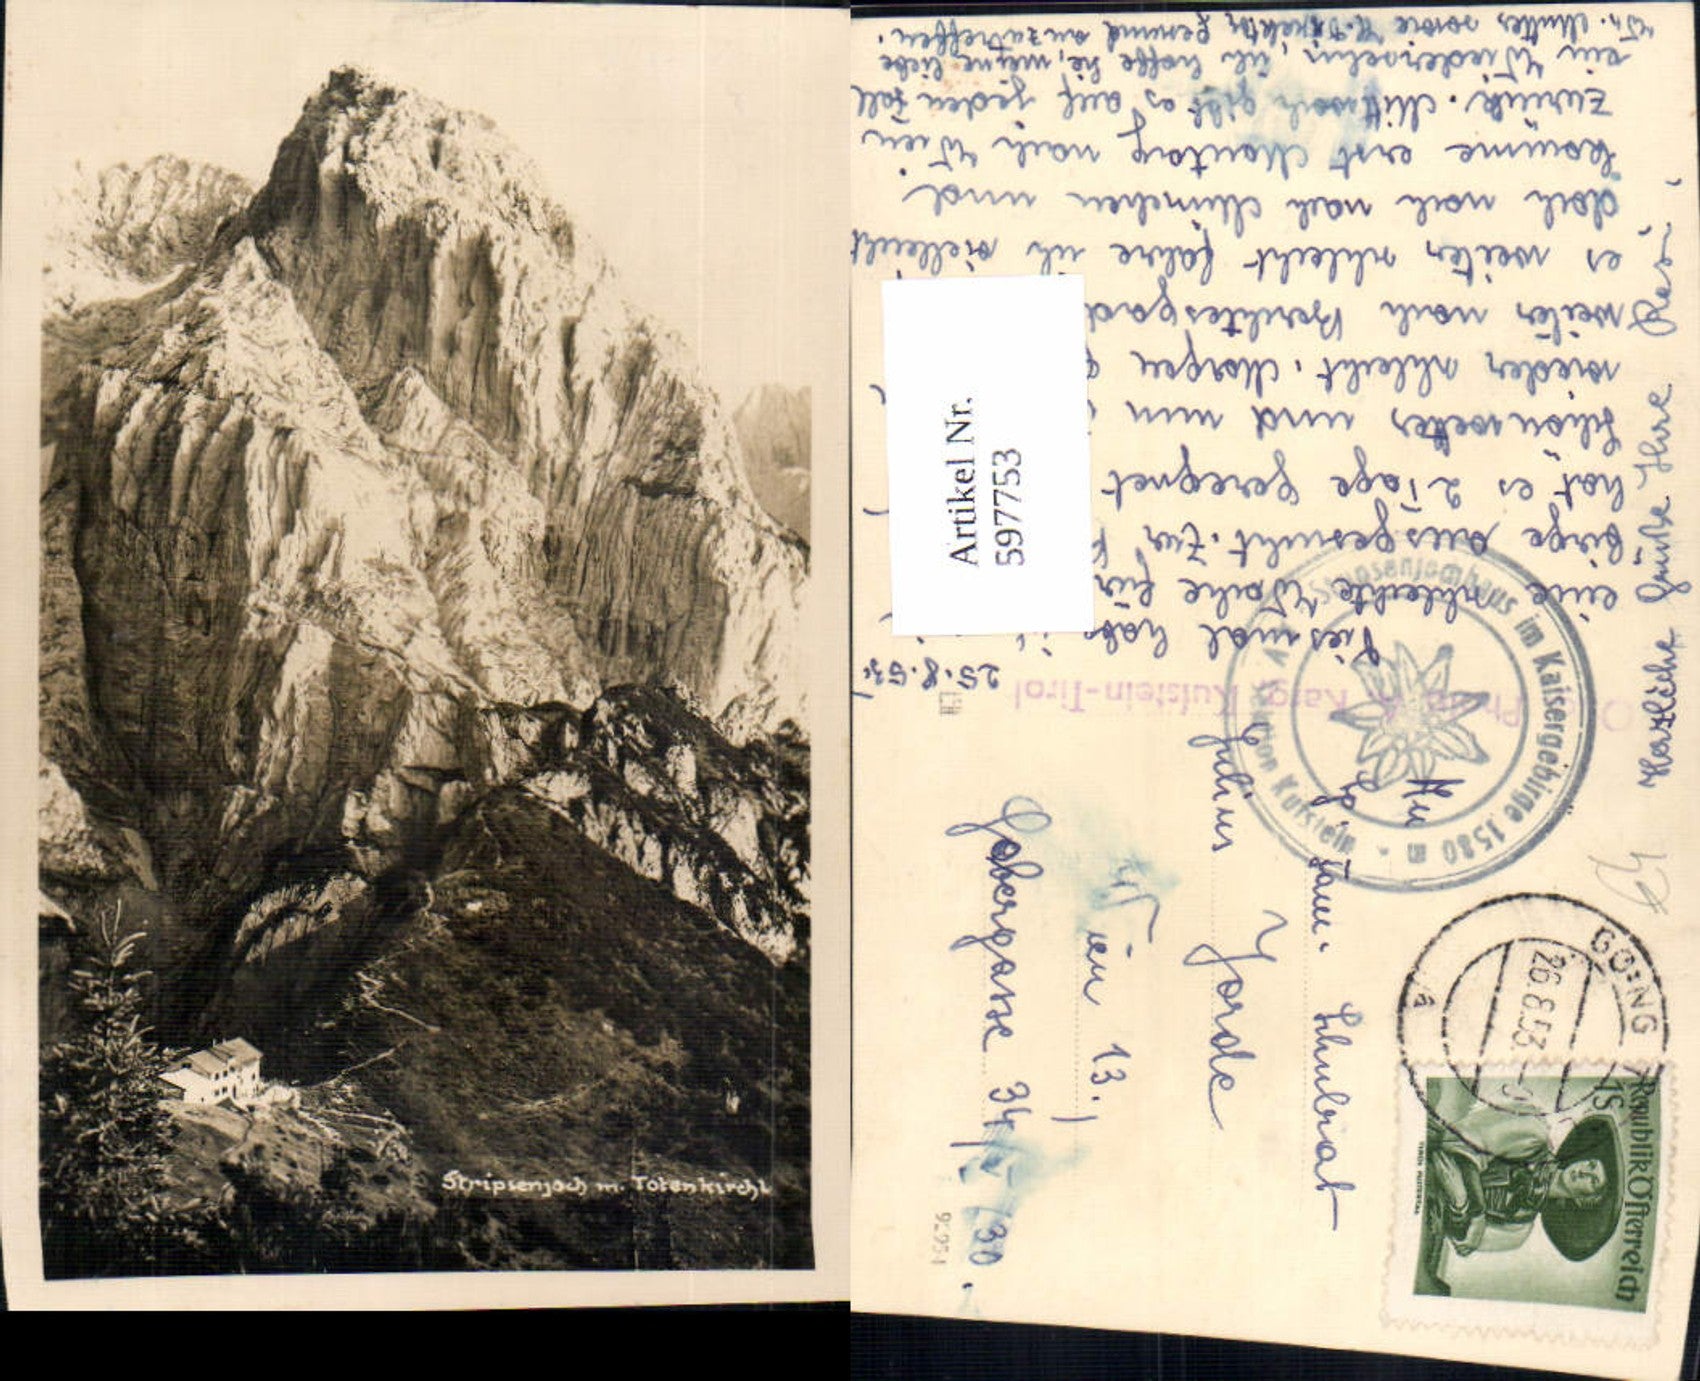 Stripsenjoch m. Totenkirchl
Artikel Nr.
597753
25.8.53
Diesmal habe
eine schlechte Woche für
birge ausgesucht. Zur
hat es 2 Tage geregnet
schön wetter und nun
wieder schlecht. Morgen
weiter nach Berchtesgad
es weiter schlecht fahre ich vielleicht
doch noch nach München und
komme erst Montag nach Wien
zurück. Mittwoch gibt es auf jeden Fall
ein Wiedersehn, ich hoffe Sie, meine liebe
Fr. Mutter sowie H. Direktor gesund anzutreffen.
Herzliche Grüße Ihre Resi
Stripsenjochhaus im Kaisergebirge 1580 m
Sektion Kufstein
Karg, Kufstein-Tirol
An
Fam. Schubrat
Julius Jorde
Wien 13.,
Gobergasse 34/5/30.
92954
GOING
26.8.53
Republik Österreich
1S